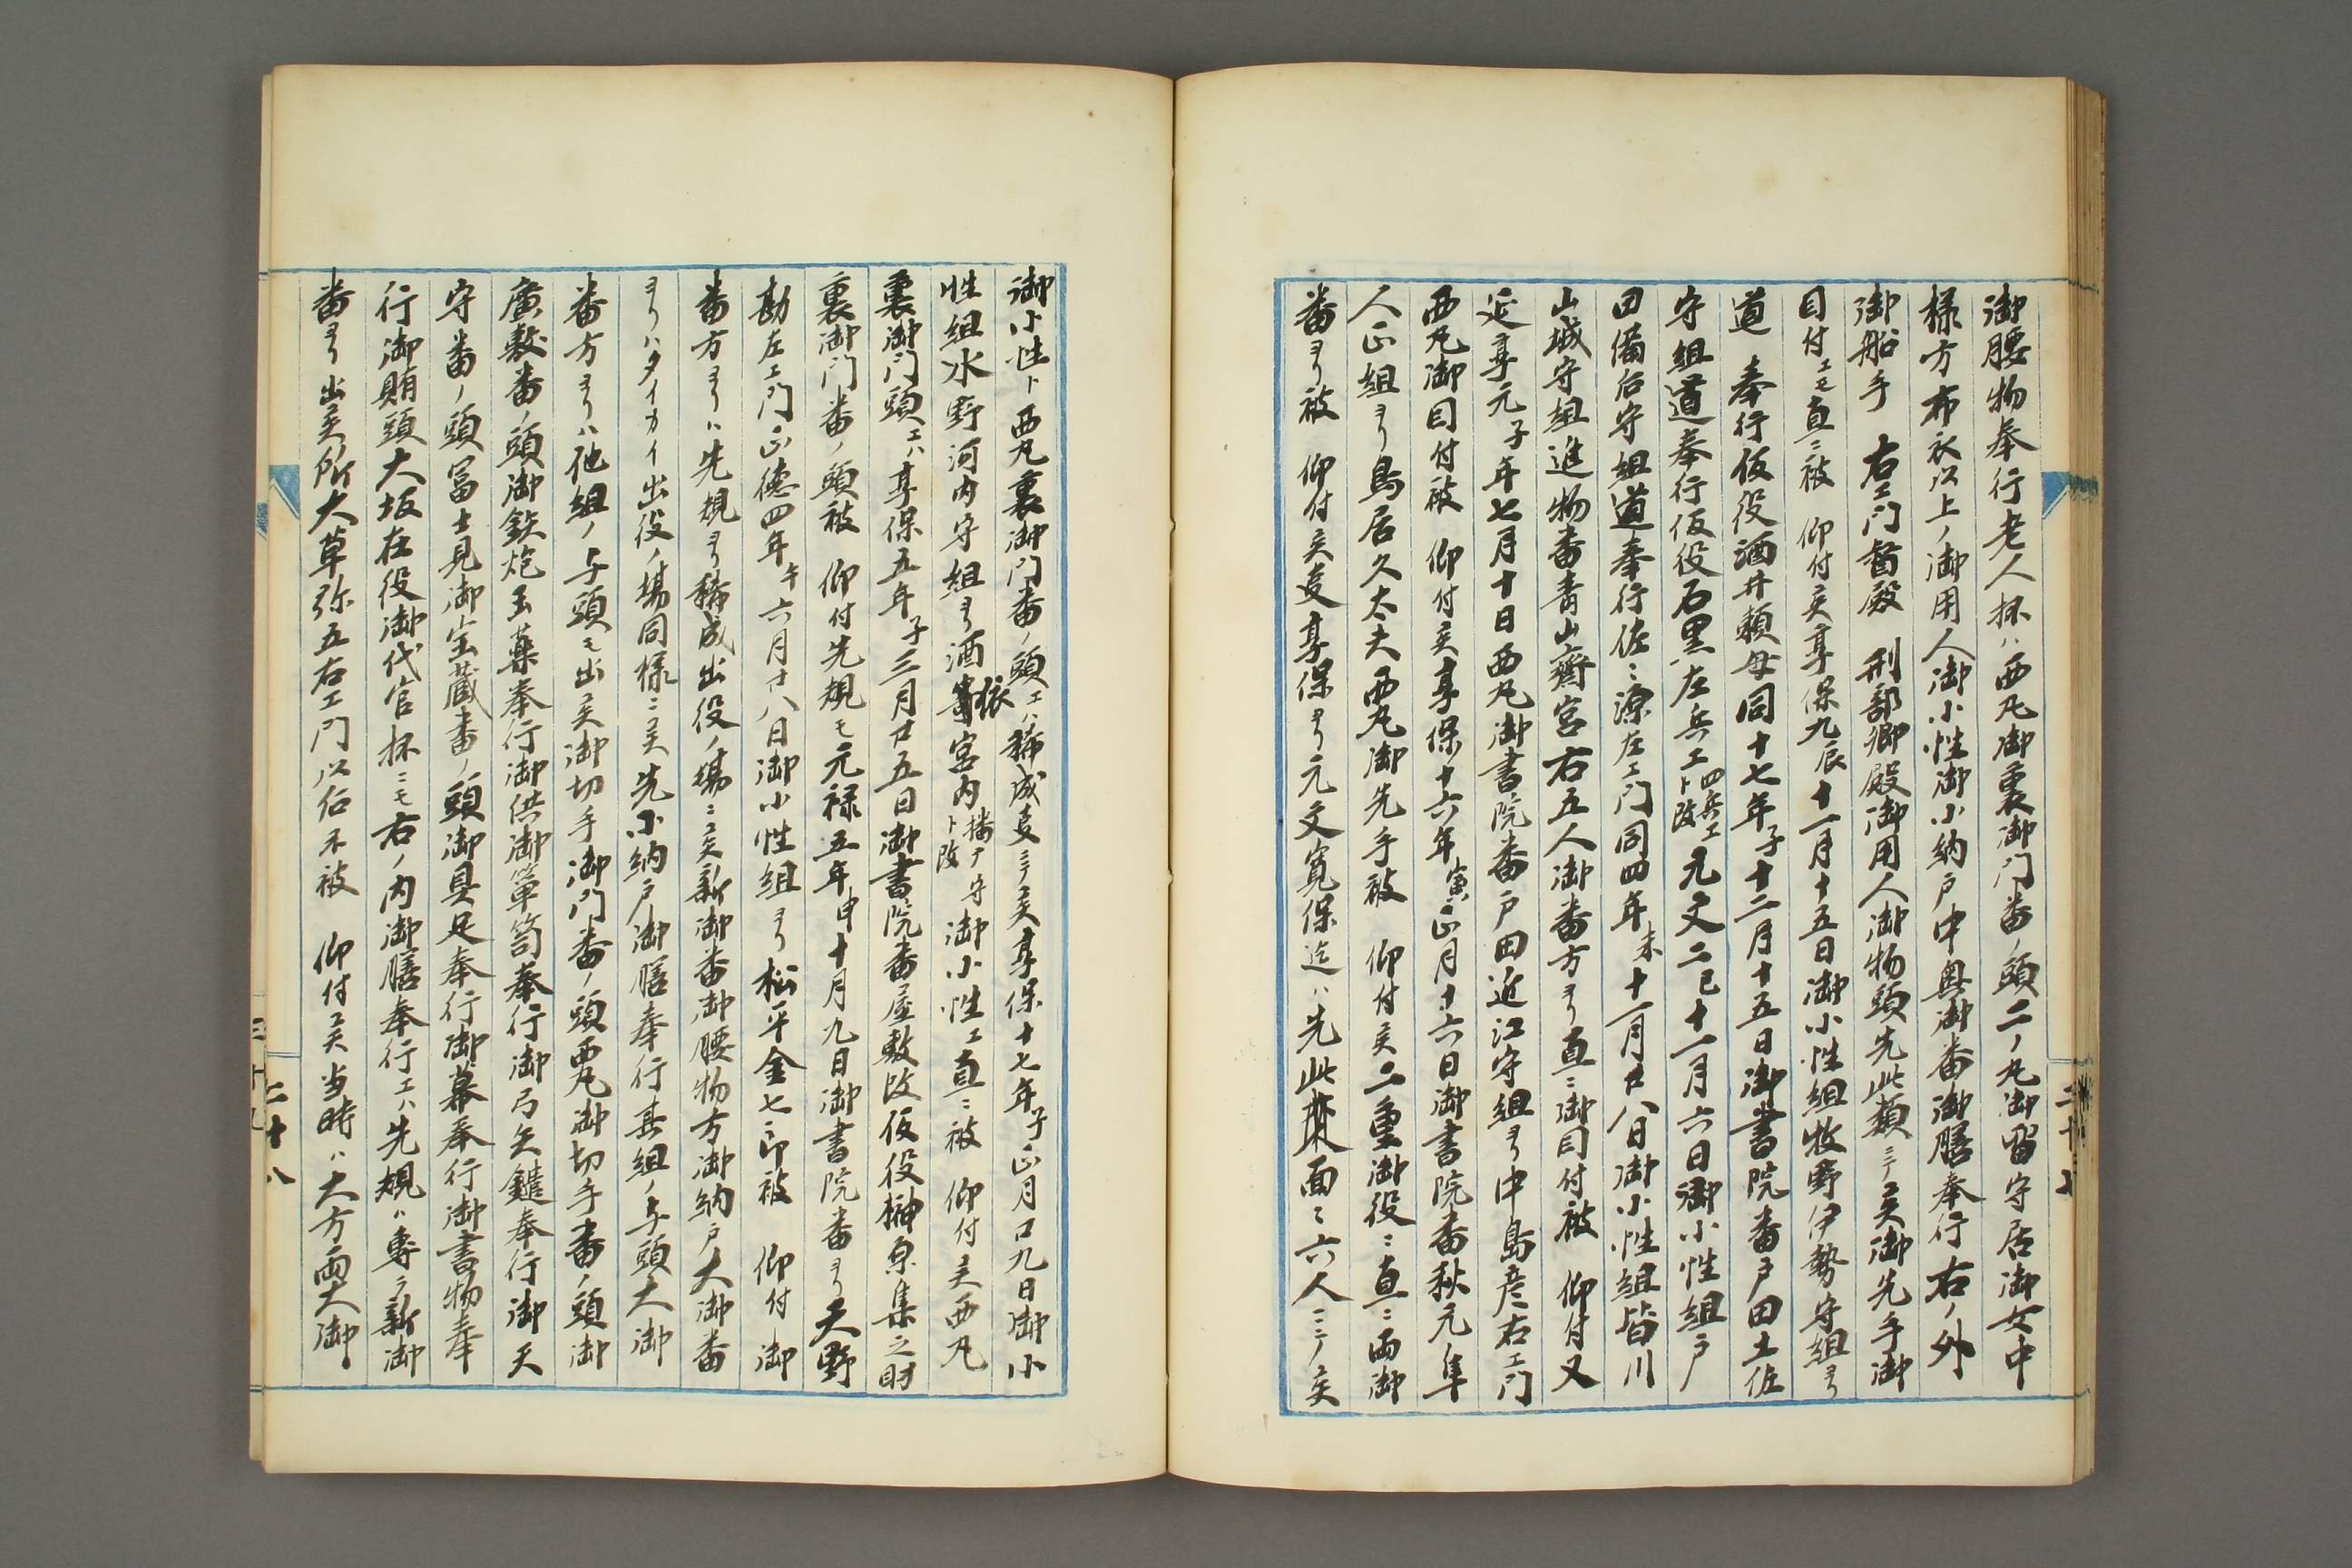 御腰物奉行老人抔ハ西丸御裏御門番ノ頭二ノ丸御留守居御女中
様方布衣以上ノ御用人御小性御小納戸中奥御番御膳奉行右ノ外
御船手　右エ門督殿　刑部卿殿御用人御物頭先此類ニテ候御先手御
目付エモ直ニ被　仰付候享保九辰十一月十五日御小性組牧野伊勢守組ヨリ
道　奉行仮役酒井頼母同十七年子十二月十五日御書院番戸田土佐
守組道奉行仮役石黒左兵エ四兵エト改元文二巳十一月六日御小性組戸
田備后守組道奉行佐々源左エ門同四年未十一月廿八日御小性組皆川
山城守組進物番青山齋宮右五人御番方ヨリ直ニ御目付被　仰付又
延享元子年七月十日西丸御書院番戸田近江守組ヨリ中島彦右エ門
西丸御目付被　仰付候享保十六年寅正月十六日御書院番秋元隼
人正組ヨリ鳥居久太夫西丸御先手被　仰付候二重御役ニ直ニ両御
番ヨリ被　仰付候麦享保ヨリ元文寛保迄ハ先此衆面々六人ニテ候
二十七
御小性ト西丸裏御門番ノ頭エハ稀成麦ニテ候享保十七年子正月口九日御小
性組水野河内守組ヨリ酒依宮内播ナ守ト改御小性エ直ニ被　仰付候西丸
裏御門頭エハ享保五年子三月廿五日御書院番屋敷改仮役榊原集之助
裏御門番ノ頭被　仰付先規モ元禄五年申十月九日御書院番ヨリ天野
勘左エ門正徳四年午六月十八日御小性組ヨリ松平金七郎被　仰付　御
番方ヨリハ先規ヨリ稀成出役ノ場ニ候新御番御腰物方御納戸大御番
ヨリハタイカイ出役ノ場同様ニ候先小納戸御膳奉行其組ノ与頭大御
番方ヨリハ他組ノ与頭モ出候御切手御門番ノ頭西丸御切手番ノ頭御
廣敷番ノ頭御鉄炮玉薬奉行御供御箪笥奉行御弓矢鑓奉行御天
守番ノ頭冨士見御宝蔵番ノ頭御具足奉行御幕奉行御書物奉
行御賄頭大坂在役御代官抔ニモ右ノ内御膳奉行エハ先規ハ專ラ新御
番ヨリ出候所大草弥五右エ門以后不被　仰付候当時ハ大方両大御
二十八